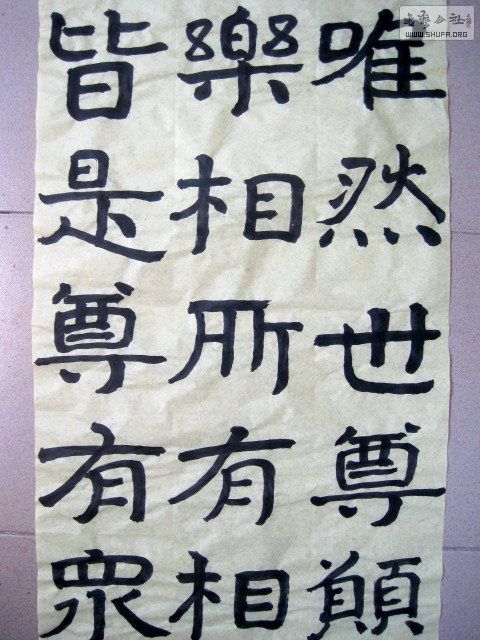 唯然世尊願
樂相所有相
皆是尊有衆
书艺公社
WWW.SHUFA.ORG